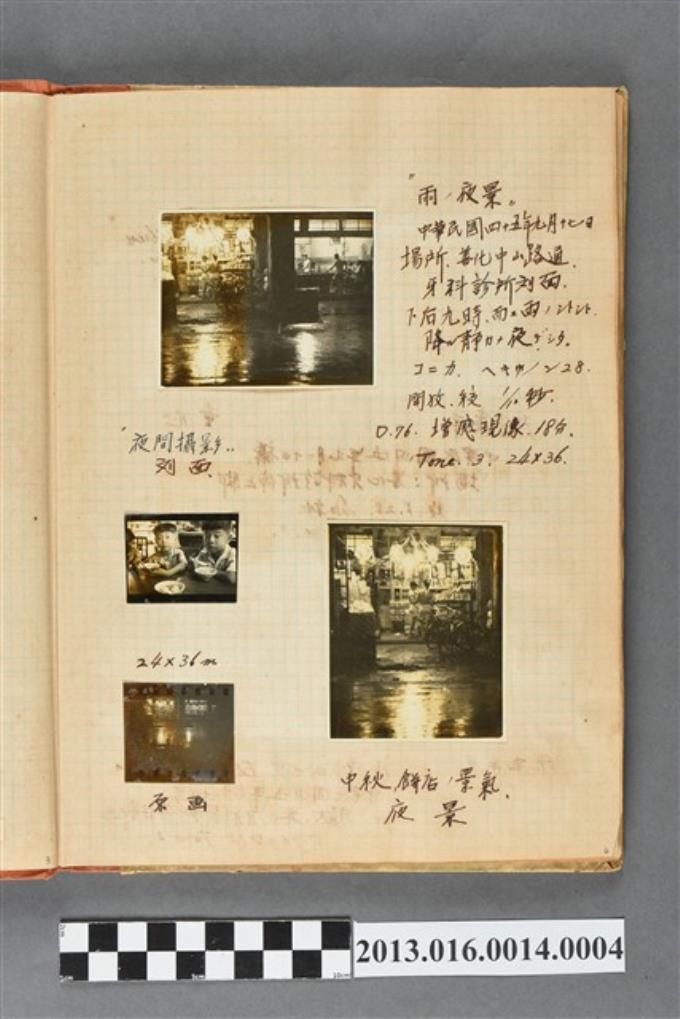 "雨ノ夜景"
中華民國四十五年九月十七日
場所、善化中山路通、
牙科診所対面、
下后九時、雨ノシトシト
降ル靜カナ夜デシタ。
コニカ、ヘキサノン 2.8.
開放、絞 1/10 秒.
D.76. 增應現像 18分.
Tone. 3. 24×36.
"夜間攝影"
対面
24×36 m
原画
中秋餅店ノ景氣、
夜景
2013.016.0014.0004